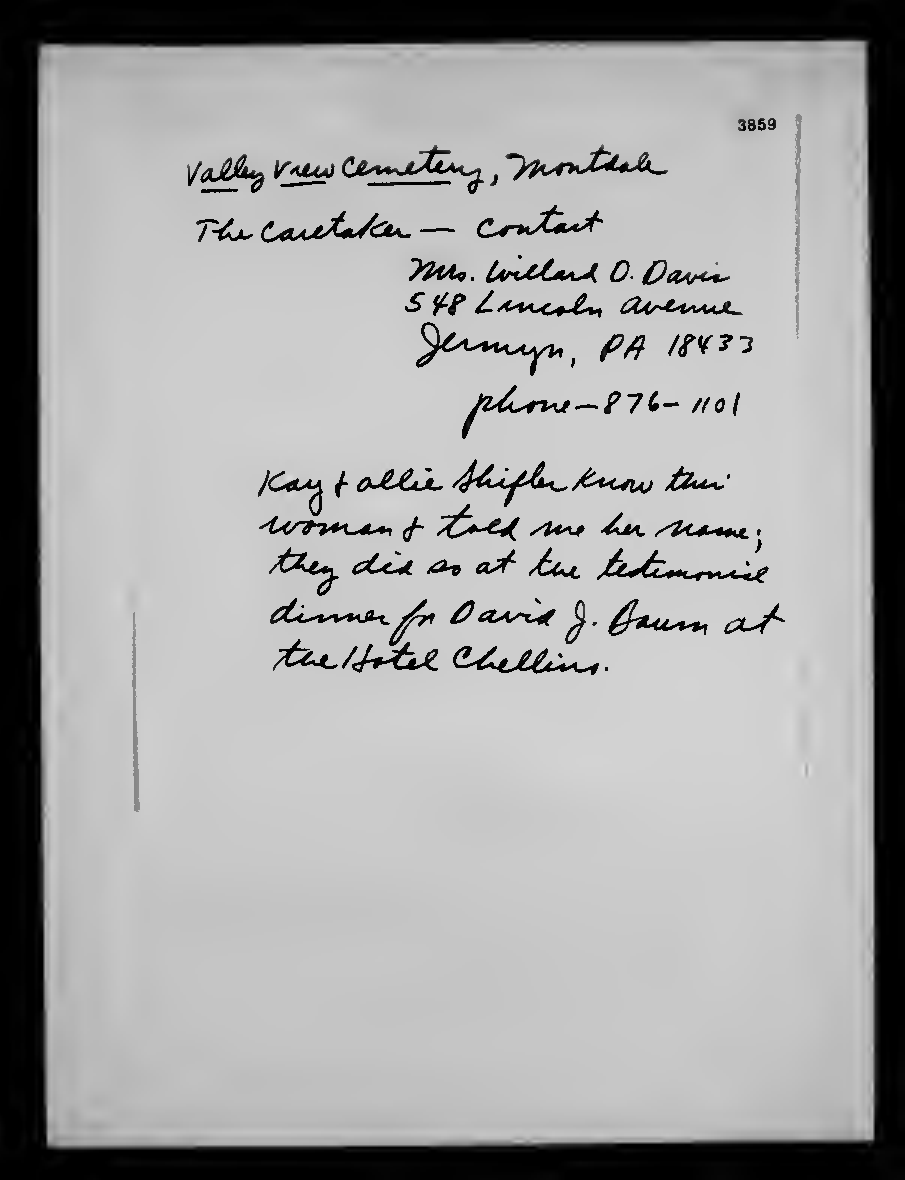 3859
Valley View Cemetery, Montdale
The Caretaker — Contact
Mrs. Willard O. Davis
548 Lincoln Avenue
Jermyn, PA 18433
phone—876-1101
Kay & Allie Shifler know this
woman & told me her name;
they did so at the testimonial
dinner for David J. Baum at
the Hotel Chellino.